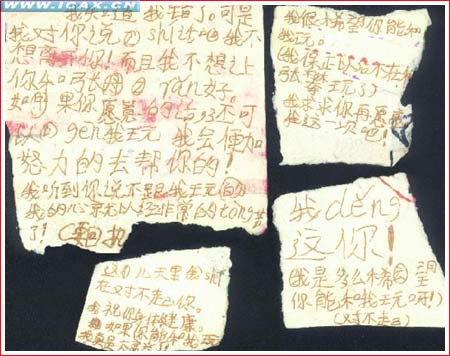 ICAX.CN
我知道 我错了。可是
我对你说了shí话吧 我不
想离开你!而且我不想让
你和张 rán好。
如果你愿意的话,还可
以gēn我玩 我会更加
努力的去帮你的!
我听到你说不跟我玩的
我的心就以经非常的tòng苦
了!
我很希望你能和
我玩。
我保正以后不在和
张 玩了
我求求你再愿意
这一次吧!
这几天里 shí
在对不起你。
我祝你身体健康。
如果你能和我玩
我děng
这你!
(我是多么希望
你能和我玩呀!)
(对不起)